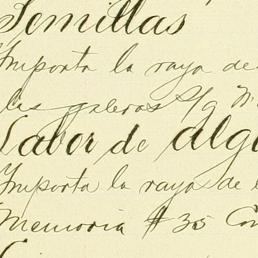 Semillas
Importa la raya de
las galeras S/g
Labor de alg
Importa la raya de
Memoria # 35 Con